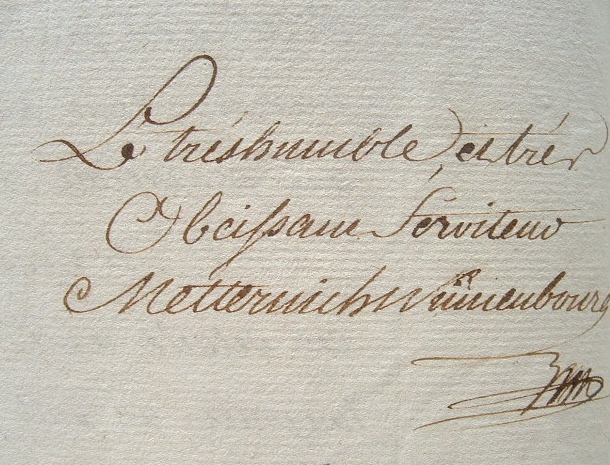 Le tréshumble et trés
Obeissant Serviteur
Metternich Winnenbourg